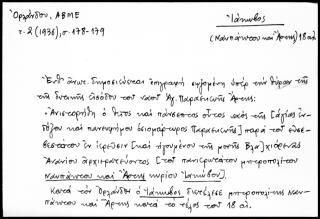 Ὀρλάνδου, ΑΒΜΕ
τ. 2 (1936), σ. 178-179
Ἰάκωβος
(Ναυπάκτου καὶ Ἄρτης) 18 αἰ.
Ἔνθ' ἀνωτ. δημοσιεύεται ἐπιγραφὴ εὑρισκομένη ὑπὲρ τὴν θύραν τῆς
τῆς δυτικῆς εἰσόδου τοῦ ναοῦ Ἁγ. Παρασκευῆς Ἄρτης:
"Ἀνιστορήθη ὁ θεῖος καὶ πάνσεπτος οὗτος ναὸς τῆς [ἁγίας ἐν-
δόξου καὶ πανευφήμου ὁσιομάρτυρος Παρασκευῆς] παρὰ τοῦ εὐσε-
βεστάτου ἐν ἱερεῦσιν [καὶ ἡγουμένου τῆς μονῆς Βλα]χέρνας
Ἀνανίου ἀρχιερατεύοντος [τοῦ πανιερωτάτου μητροπολίτου
Ναυπάκτου καὶ Ἄρτης κυρίου Ἰακώβου].
Κατὰ τὸν Ὀρλάνδον ὁ Ἰάκωβος διετέλεσε μητροπολίτης Ναυ-
πάκτου καὶ Ἄρτης κατὰ τὸ τέλος τοῦ 18 αἰ.